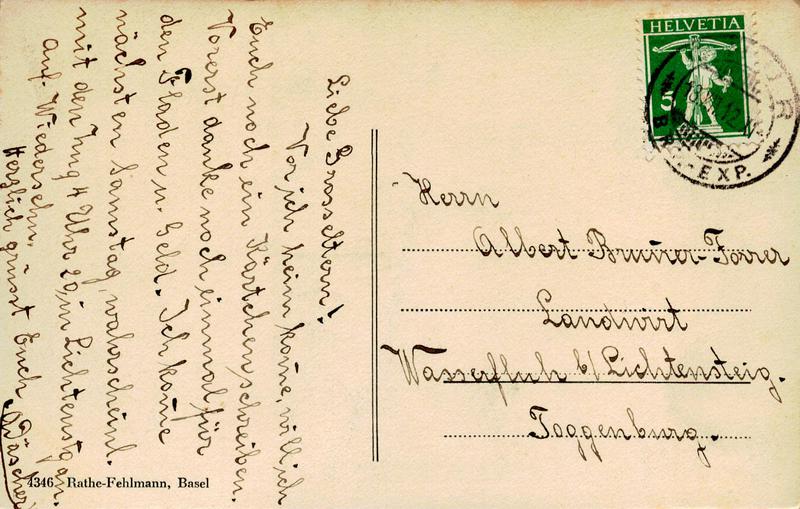 Liebe Grosseltern!
Vor ich heim kome, will ich
Euch noch ein Kärtchen schreiben.
Vorerst danke noch einmal für
den Fladen u. Geld. Ich kome
nächsten Samstag, wahrscheinl.
mit dem Zug 4 Uhr 20, in Lichtenstg. an.
auf Wiedersehn.
Herzlich grüsst Euch
HELVETIA
5
EXP.
Herrn
Albert Brunner-Forrer
Landwirt
Wasserfluh b/Lichtensteig.
Toggenburg.
4346 Rathe-Fehlmann, Basel